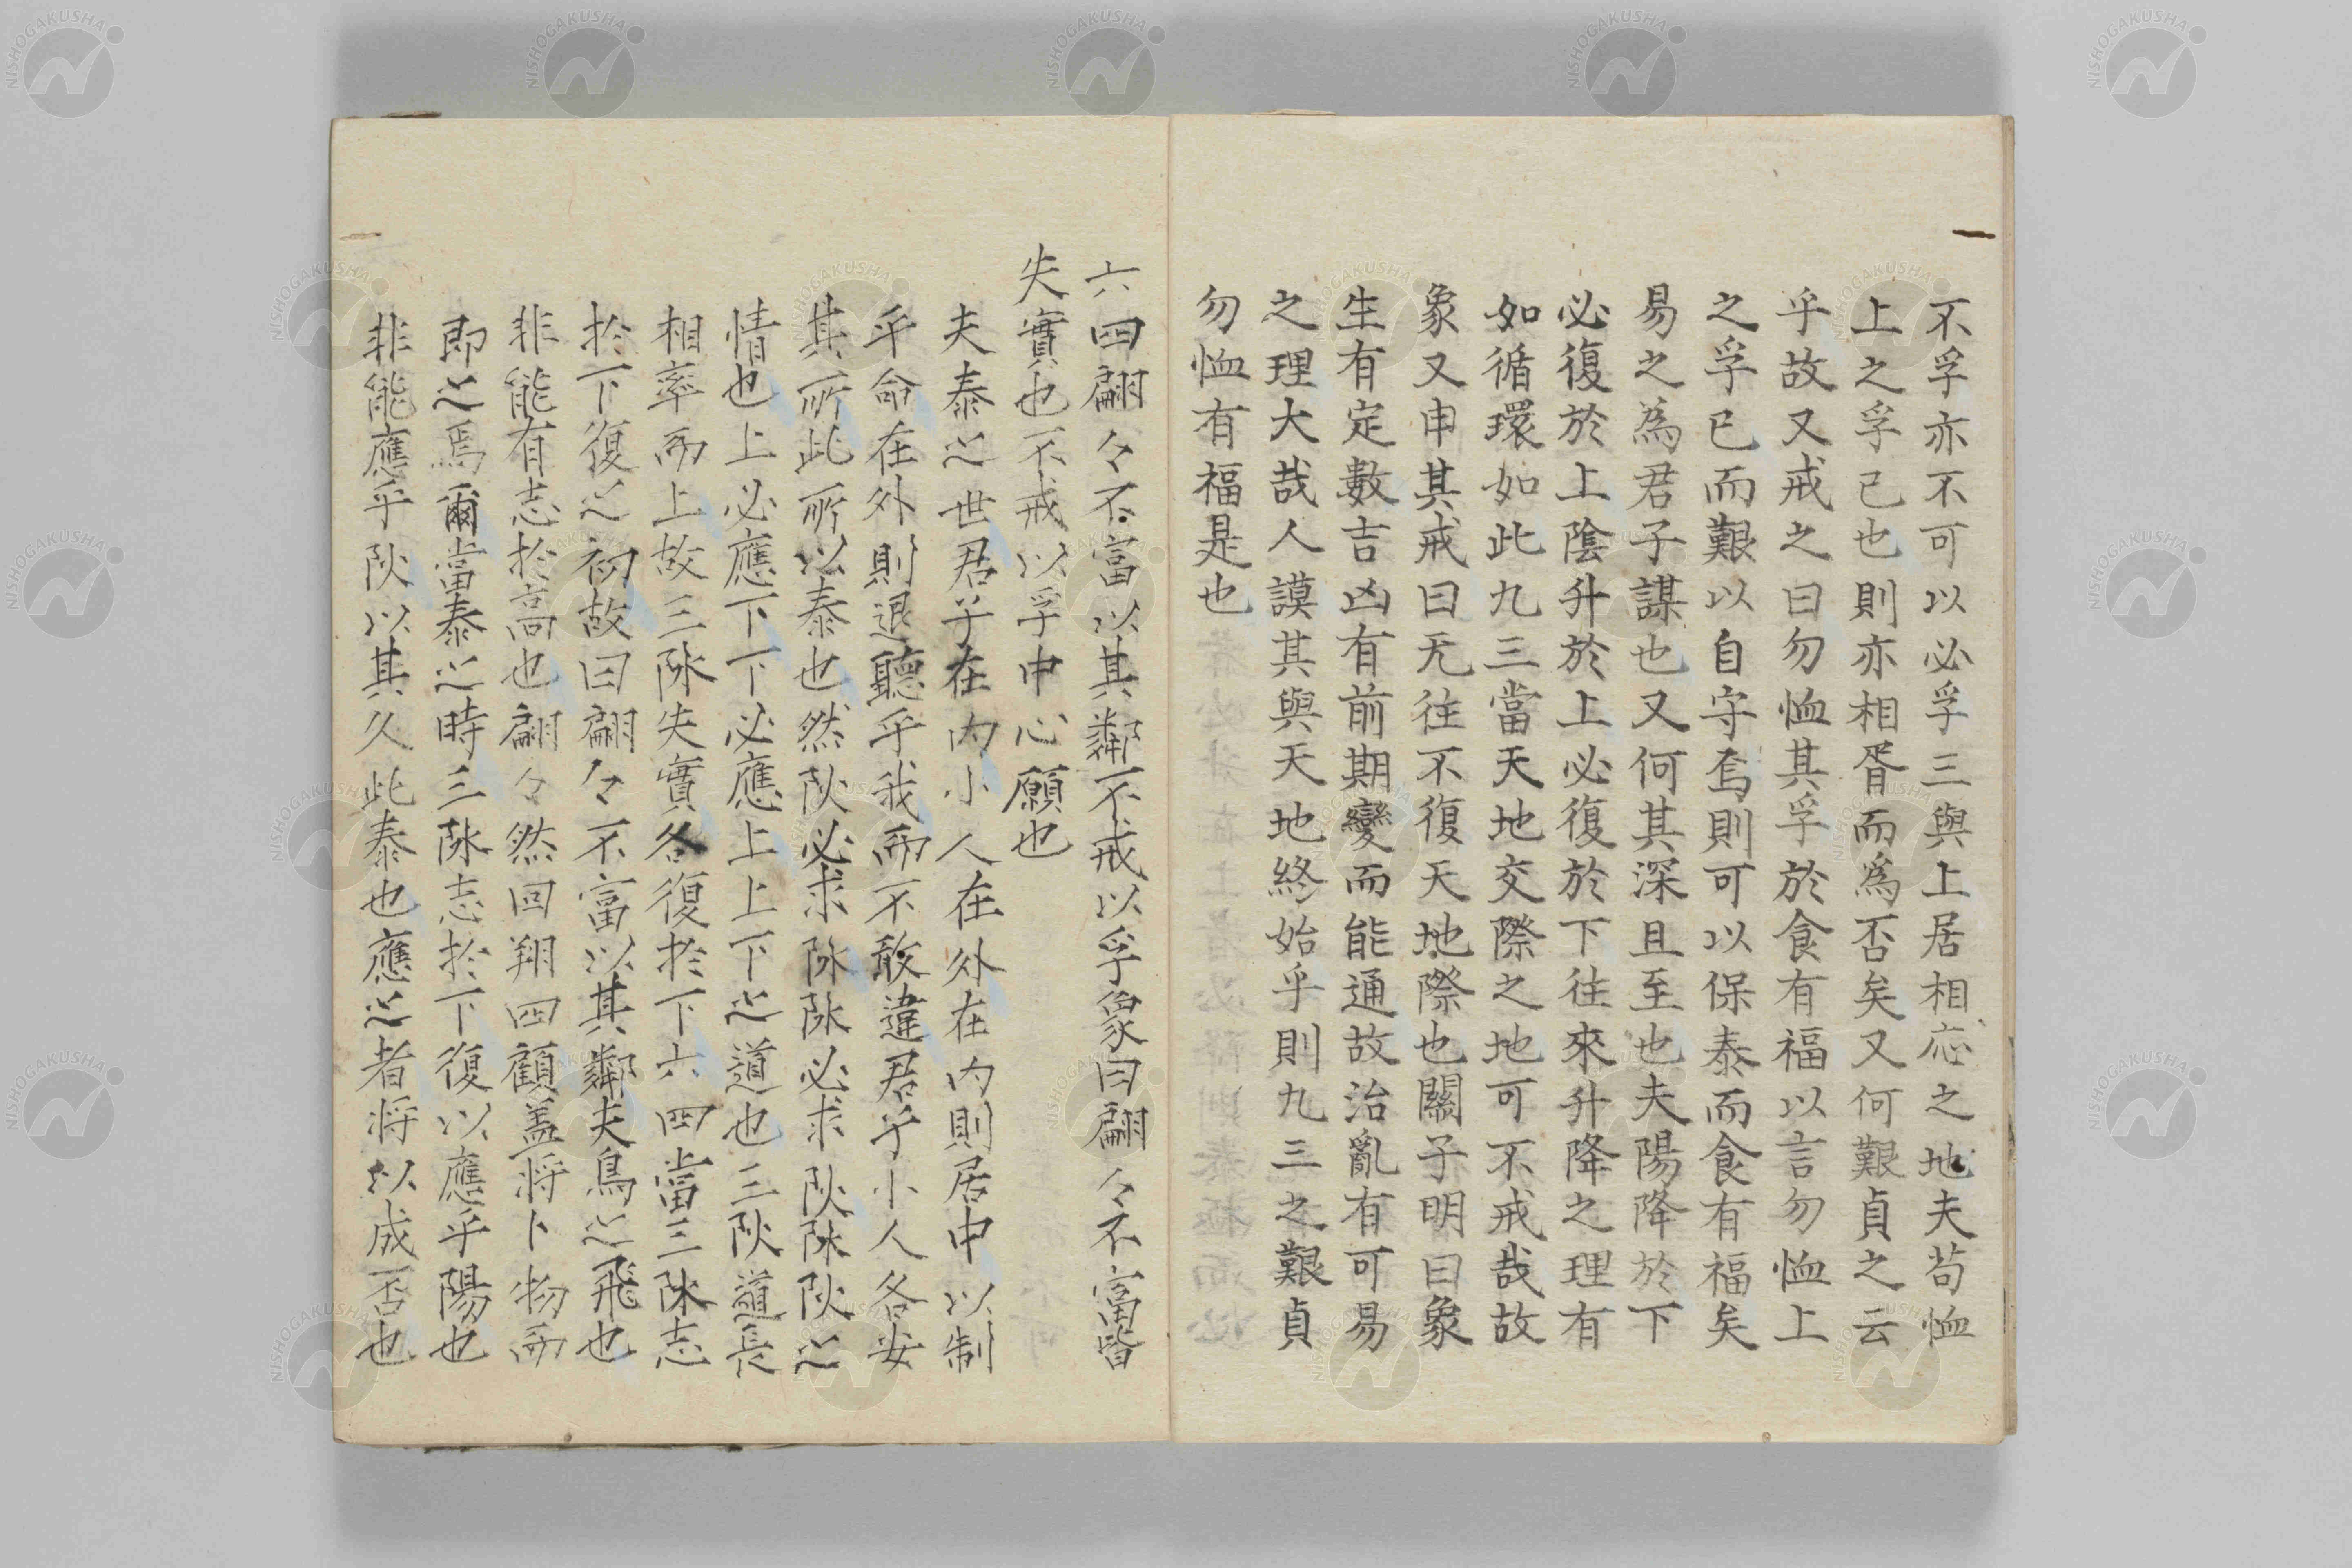 不孚亦不可以必孚三與上居相応之地夫苟恤
上之孚已也則亦相胥而為否矣又何艱貞之云
乎故又戒之曰勿恤其孚於食有福以言勿恤上
之孚已而艱以自守焉則可以保泰而食有福矣
易之為君子謀也又何其深且至也夫陽降於下
必復於上陰升於上必復於下往來升降之理有
如循環如此九三當天地交際之地可不戒哉故
象又申其戒曰无往不復天地際也關子明曰象
生有定數吉凶有前期變而能通故治亂有可易
之理大哉人謨其與天地終始乎則九三之艱貞
勿恤有福是也
六四翩々不富以其鄰不戒以孚象曰翩々不富皆
失實也不戒以孚中心願也
夫泰之世君子在内小人在外在内則居中以制
乎命在外則退聽乎我而不敢違君子小人各安
其所此所以泰也然阦必求阥阥必求阦阥阦之
情也上必應下下必應上上下之道也三阦道長
相率而上故三阥失實各復於下六四當三阥志
於下復之初故曰翩々不富以其鄰夫鳥之飛也
非能有志於高也翩々然回翔四顧盖將卜物而
即之焉爾當泰之時三阥志於下復以應乎陽也
非能應乎阦以其久此泰也應之者将以成否也
NISHOGAKUSHA